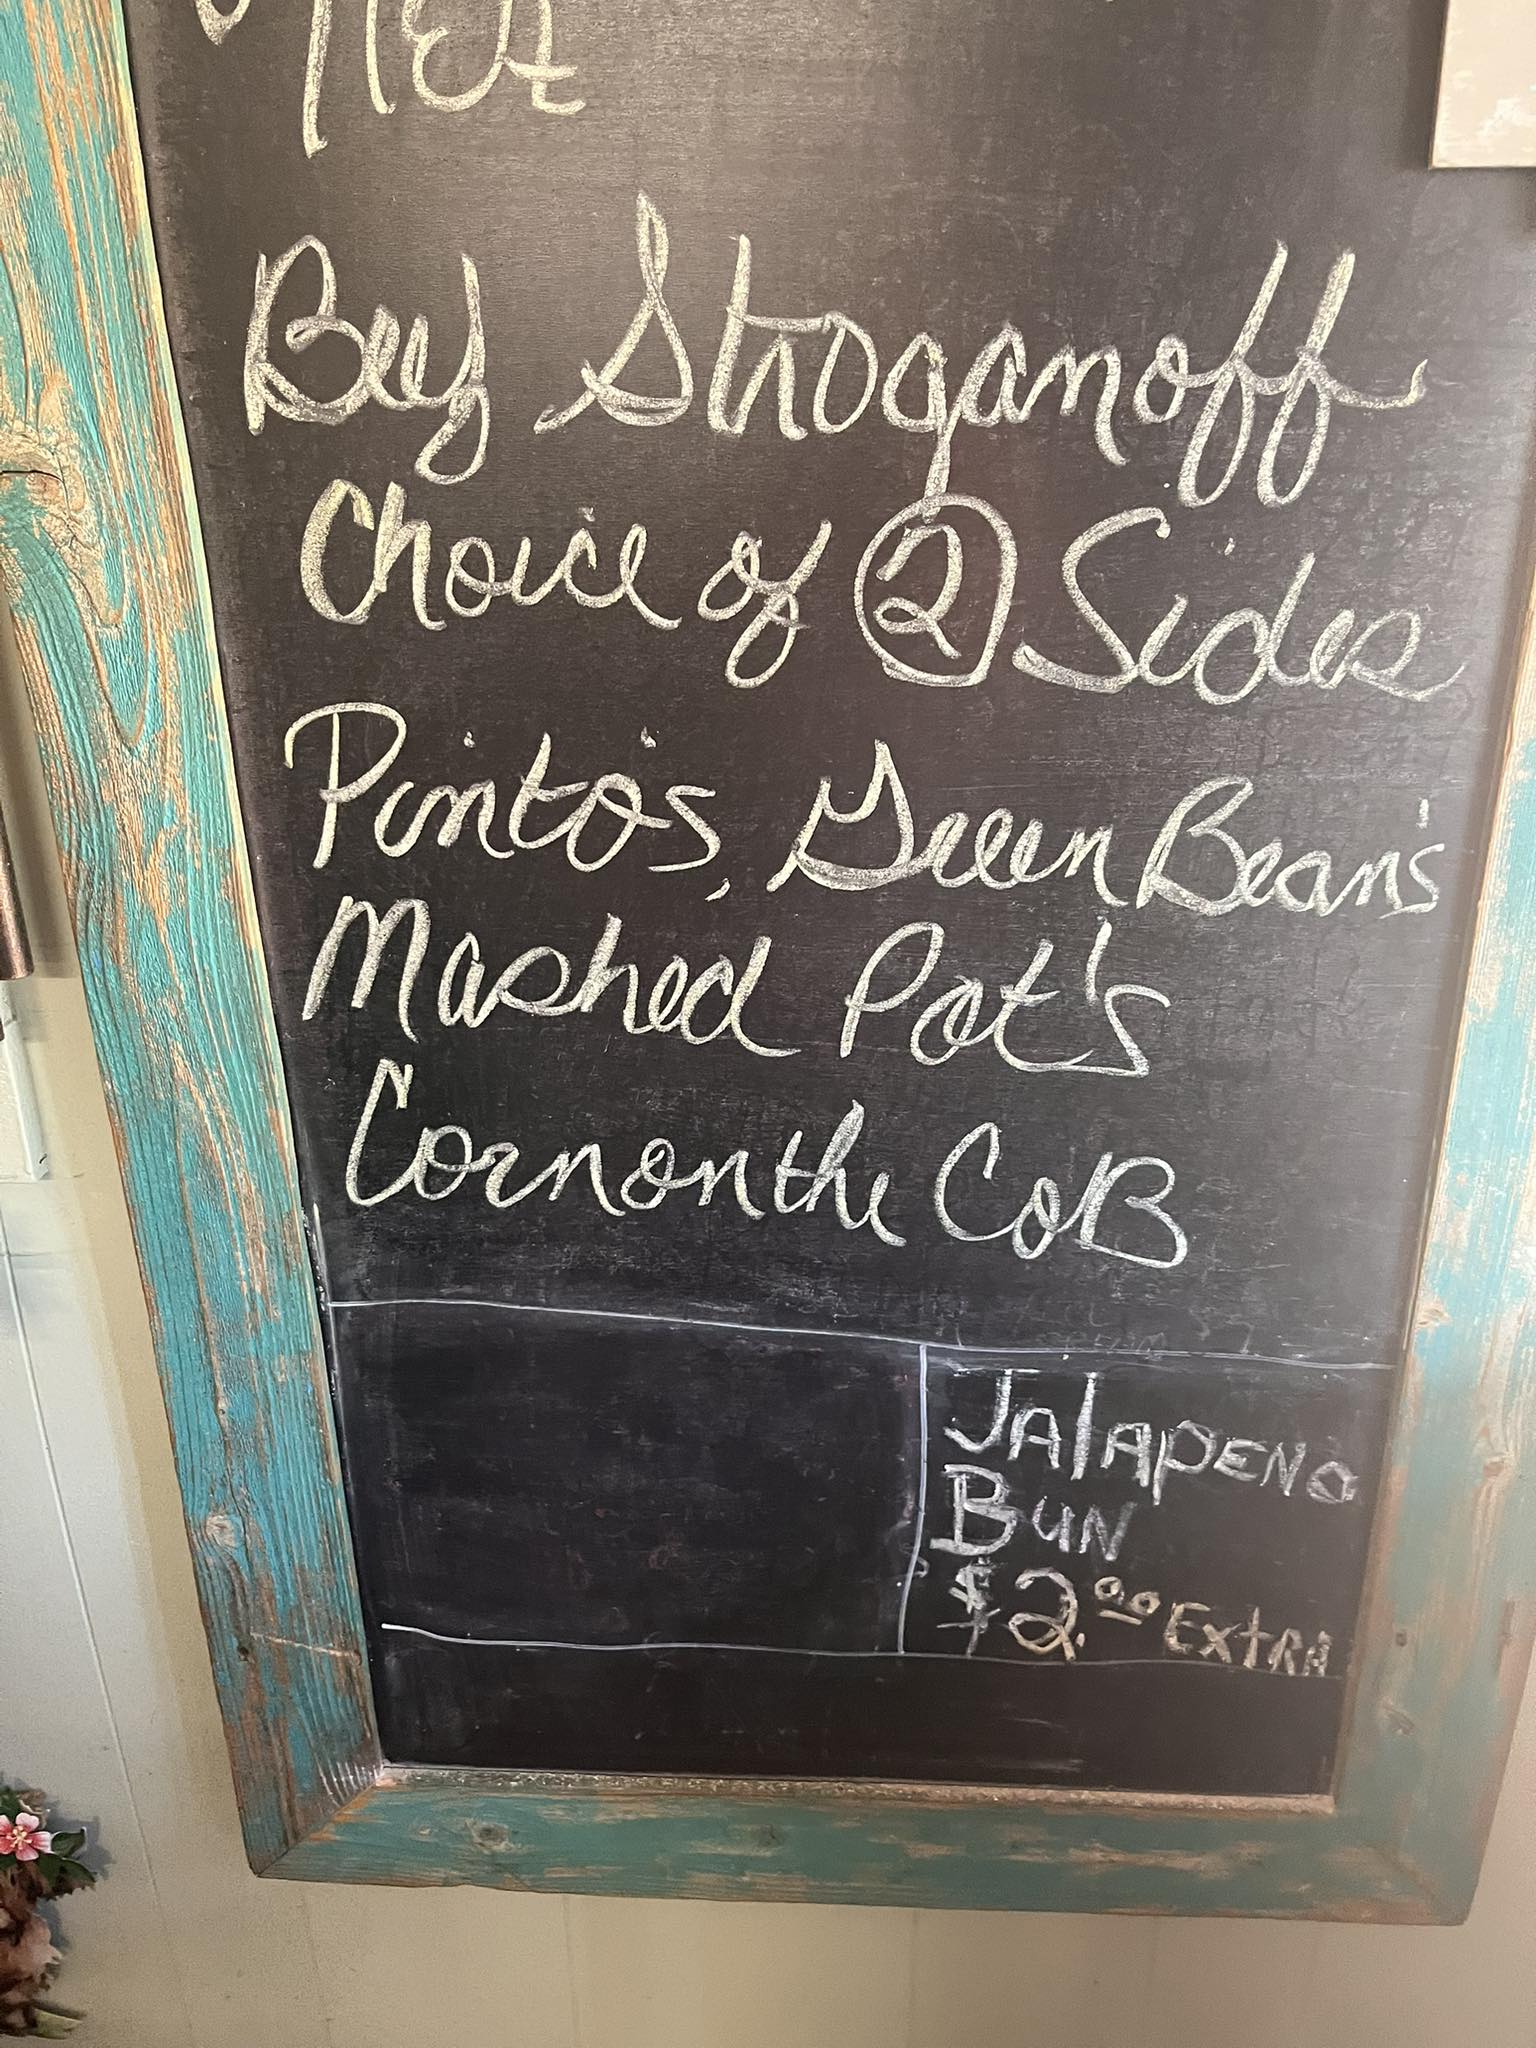 Beef Stroganoff
Choice of 2 Sides
Pinto's, Green Bean's
Mashed Pot's
Corn on the CoB
JAlAPENO
BUN
$2.00 ExtRA